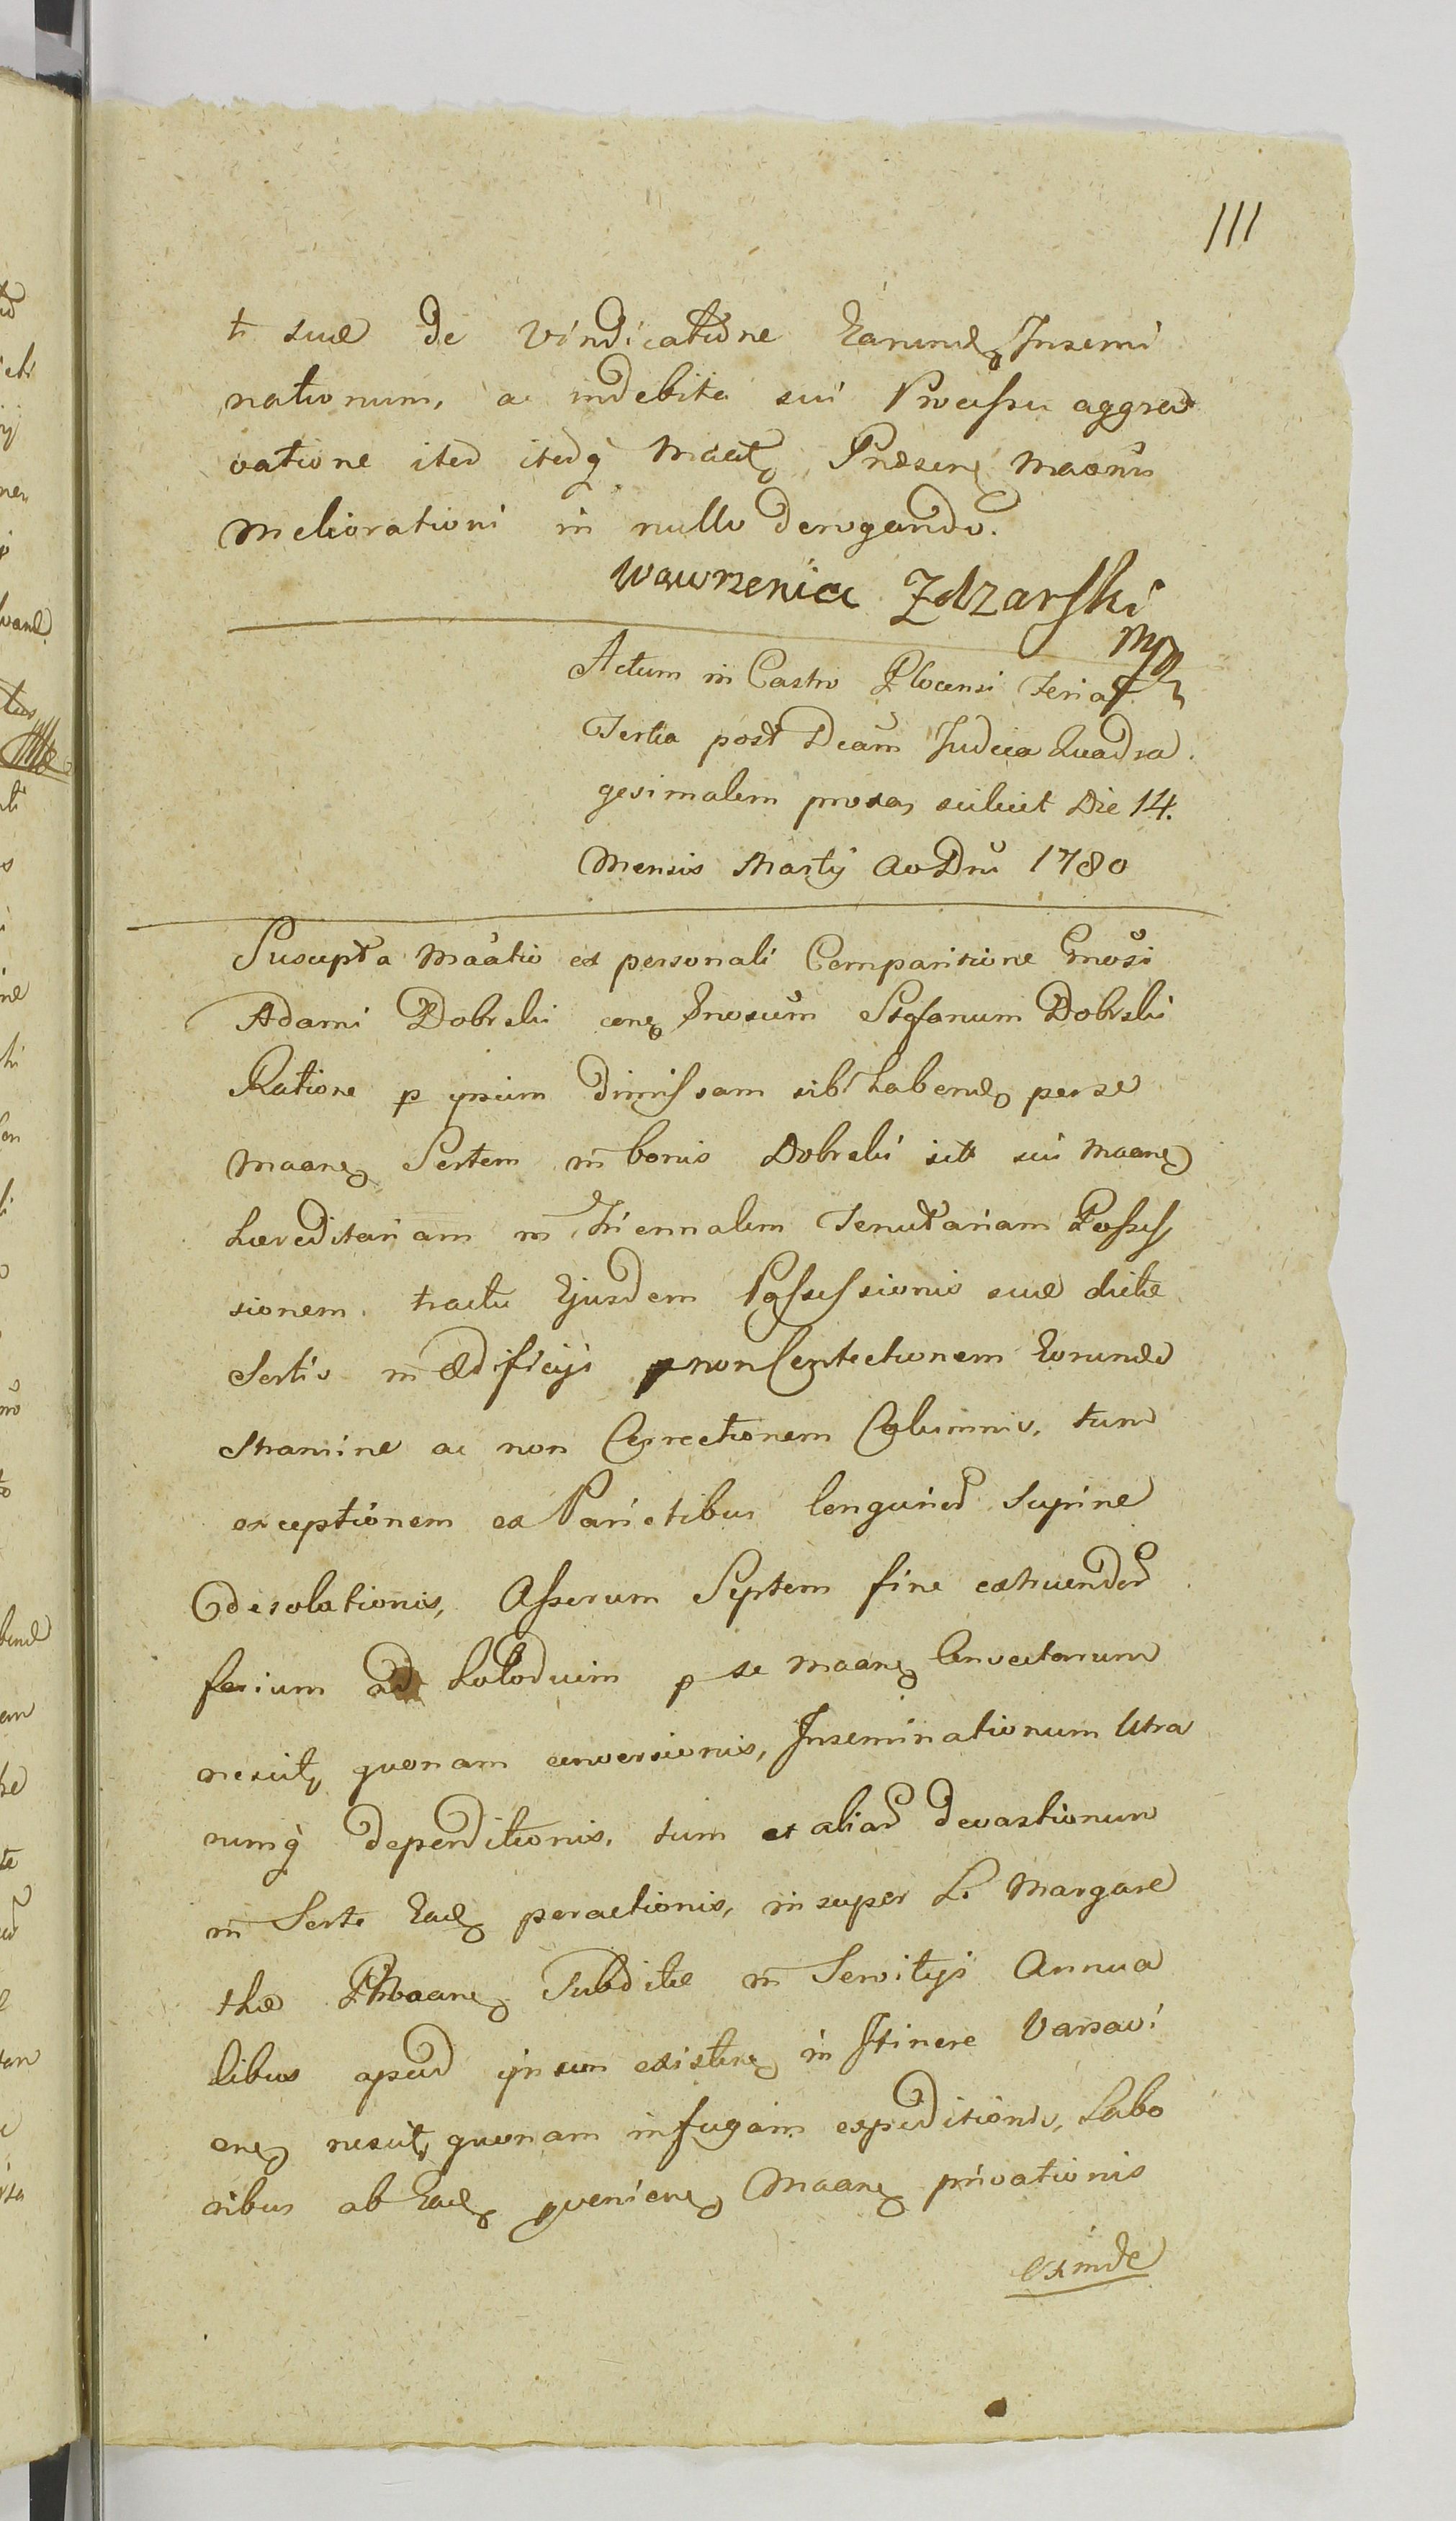 111
t suæ de vindicatione Earund, Insemi
nationum, ac indebita sui Processu aggra
vatione
Meliorationi in nullo derogando.
Wawrzeniec Zdzarski
mp
Actum in Castro Plocensi Feria
Tertia post Dcam Judica Quadra
gesimalem proxa, scilicet Die 14.
Mensis Martij Ao Dni 1780
Suscepta Maatio ex personali Comparitione Gnosi
Adami Dobrski cong Gnosum Stefanum Dobrski
Ratione p ipsum dimissam sibi habend, per se
Maang Sortem in bonis Dobrski sit sui Maang
hæreditariam in Triennalem Tenutariam Posses
sionem. tractu Ejusdem Possessionis suæ dictæ
Sortis in Ædificijs p non Contectionem Eorund
stramine ac non Correctionem Columnis, tum
exceptionem ex Parietibus lignu supinæ
desolationis, Asserum Septem fine extruendor
p se Maang Convectorum
nescit quonam conversionis, Inseminationum Utra
rumq deperditionis, tum et aliar devastionum
in Sorte Ead peractionis, insuper L. Margare
thæ Subditæ in Servitijs Annua
libus apud ipsum existeng in Itinere Varsavi
eng nescit quonam in fugam expeditionis, Labo
ribus ab Ead pveniens Maang privationis
Exinde